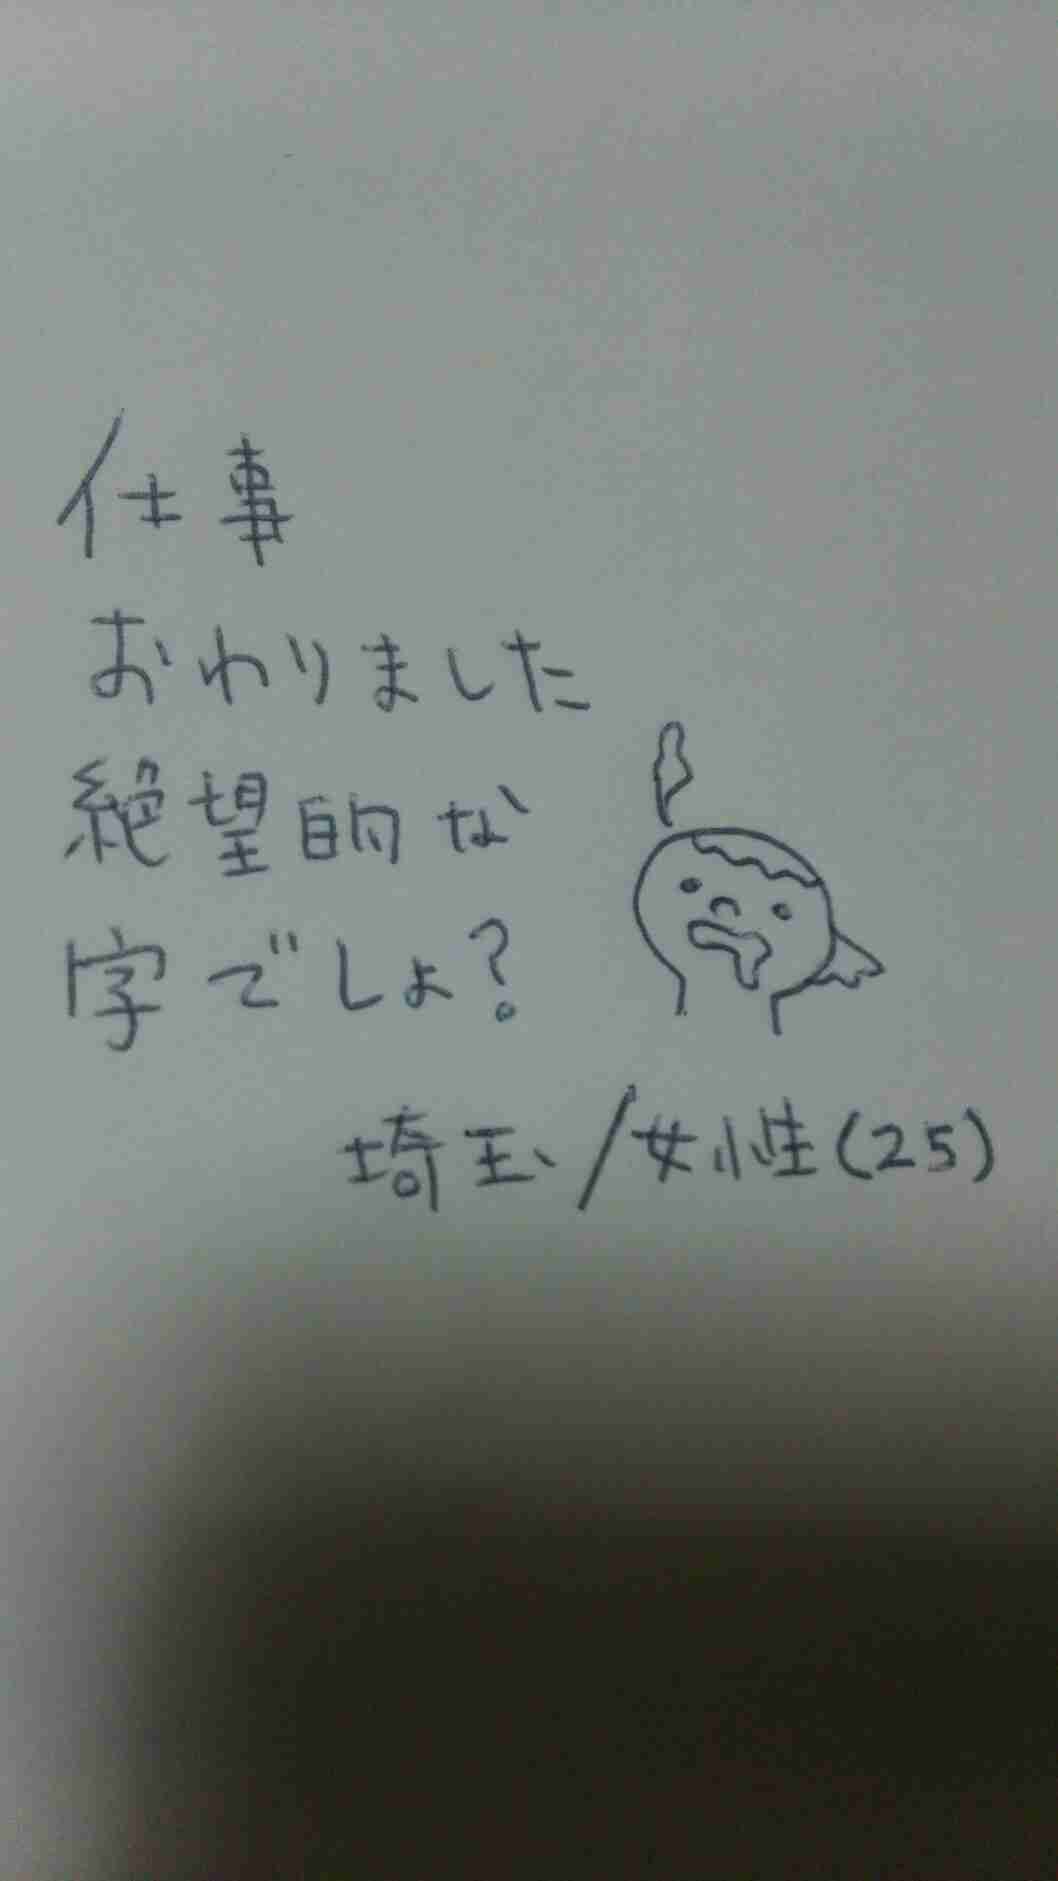 仕事
おわりました
絶望的な
字でしょ?
埼玉/女性(25)